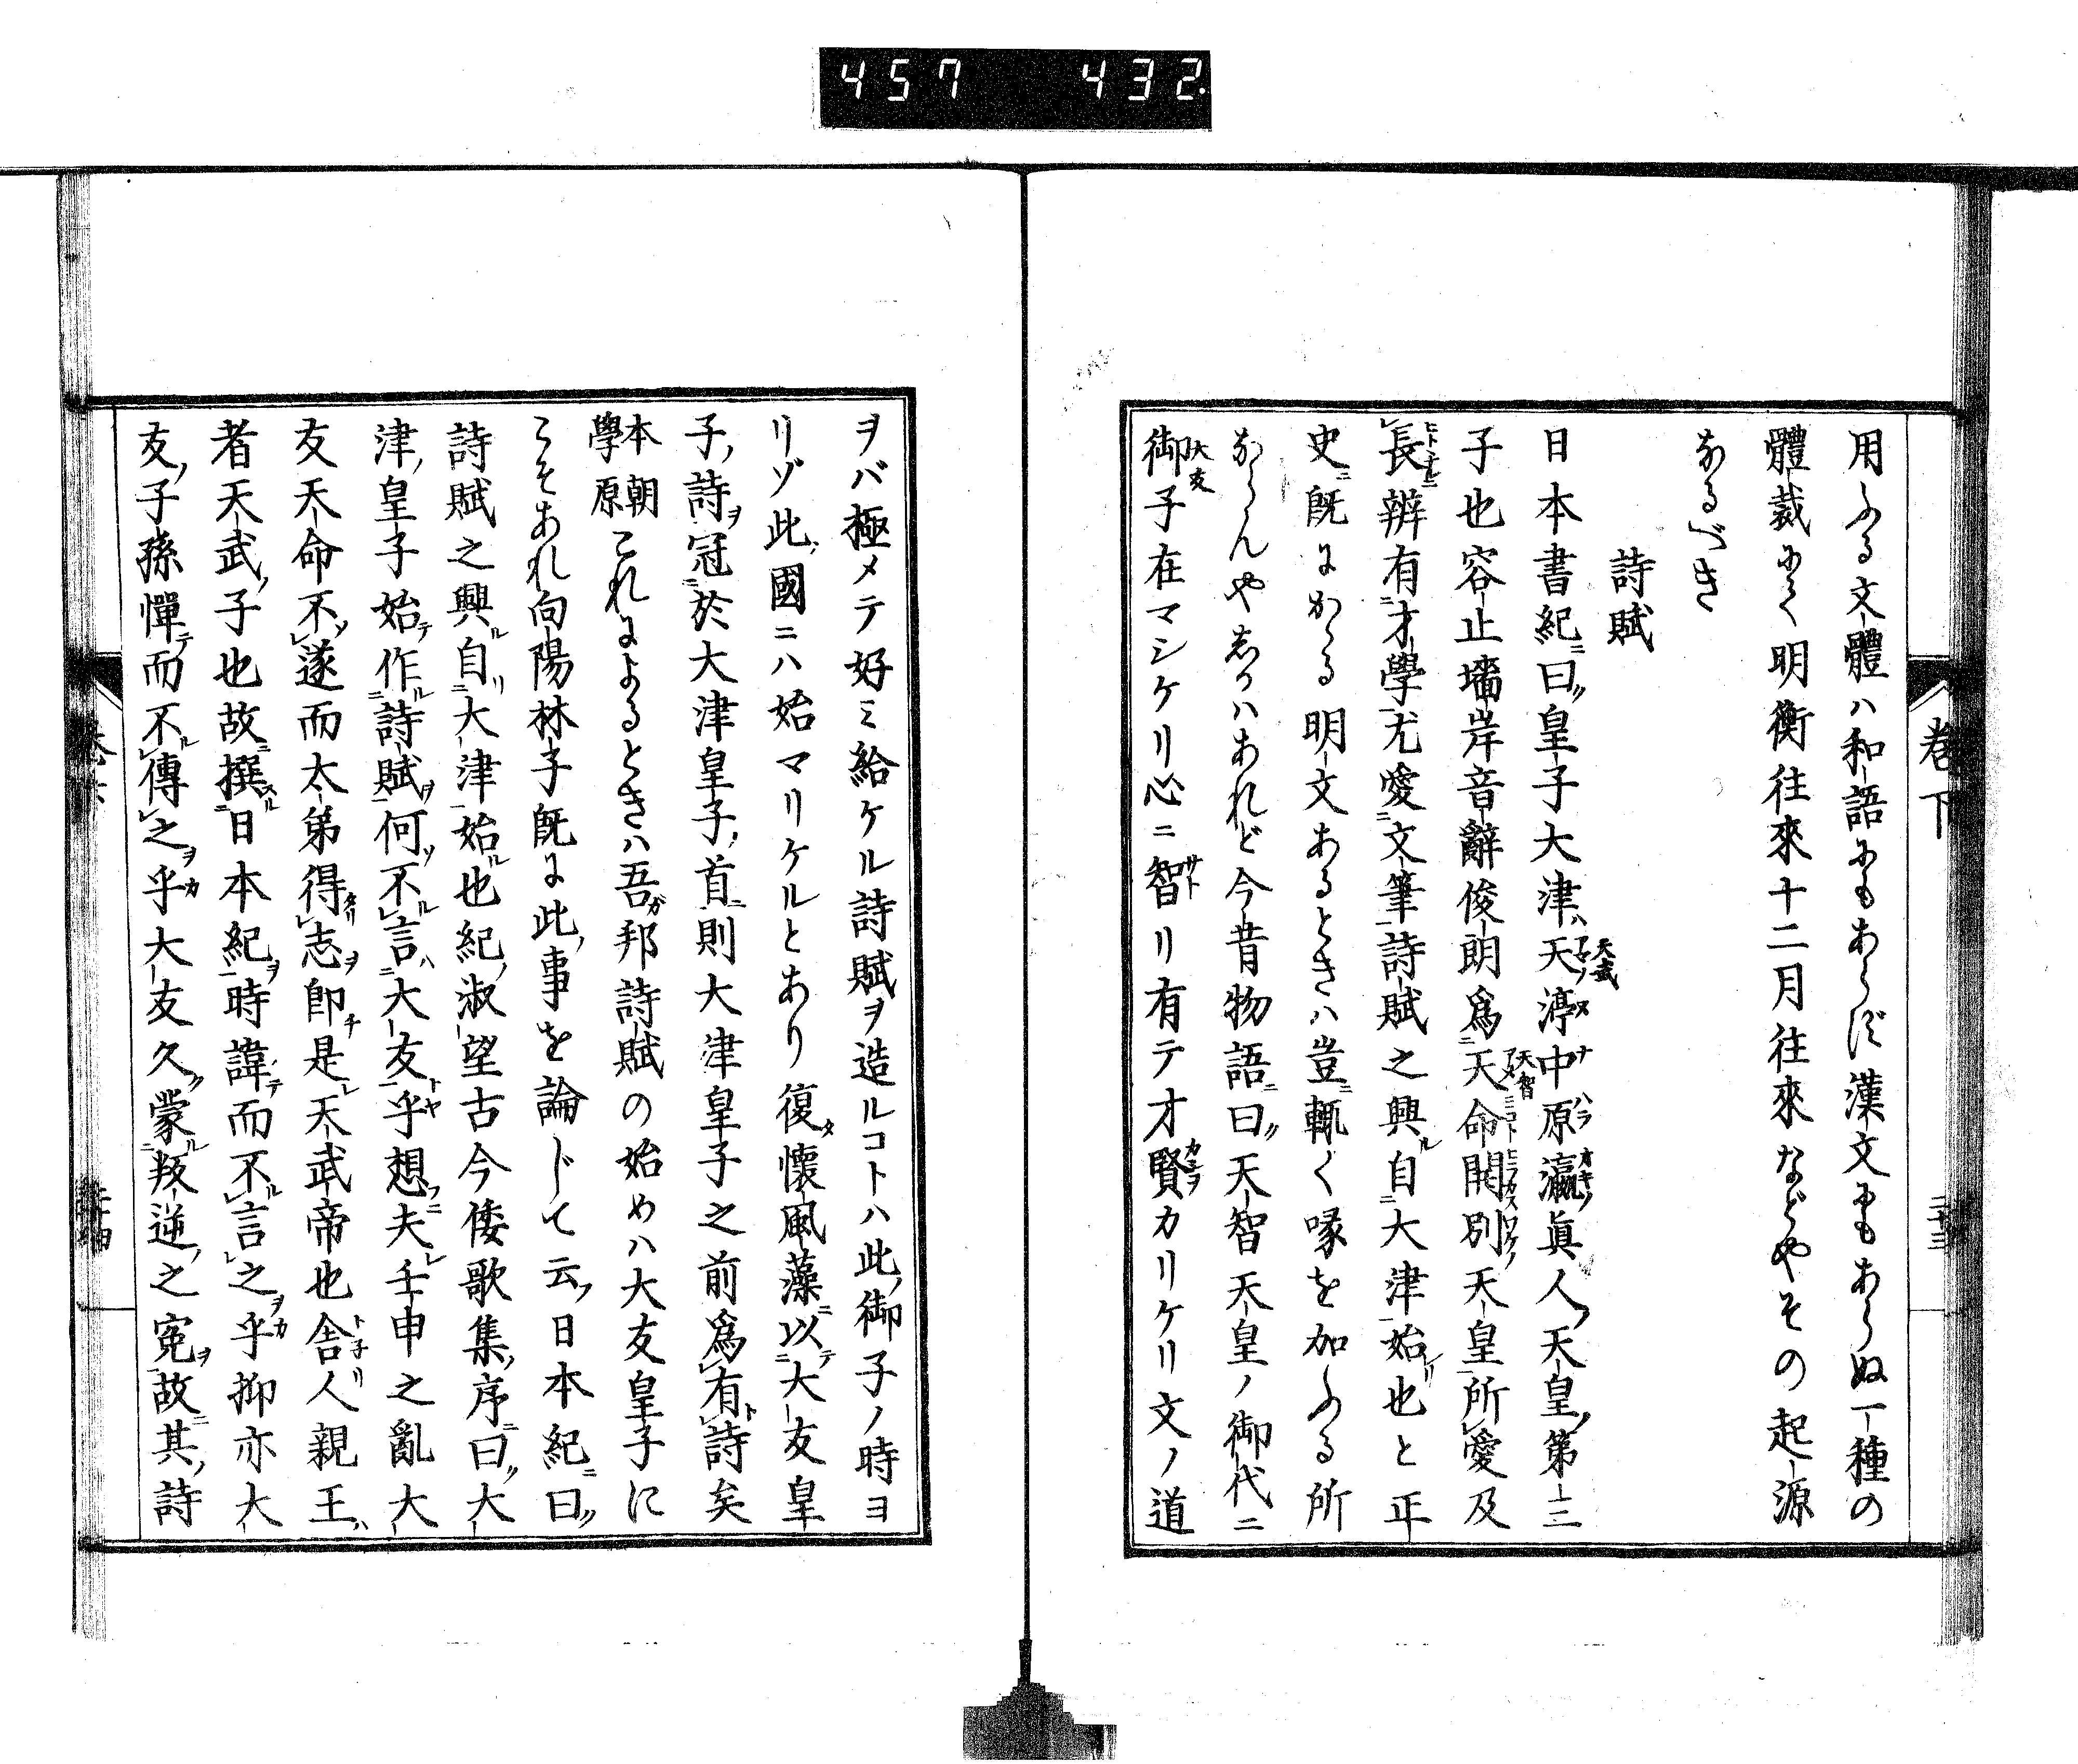 457 432
卷下
二十三
用ふる文體ハ和語にもあらず漢文にもあらぬ一種の
體裁にて明衡往來十二月往來などやその起源
なるべき
詩賦
日本書紀ニ曰ク皇子大津ハ天渟中原瀛眞人ノ天皇ノ第三
子也容止墻岸音辭俊朗爲天命開別天皇所愛及
長辨有才學尤愛文筆詩賦之興自大津始也と正
史ニ既にかゝる明文あるときハ豈ニ輙く喙を加ふる所
ならんや志かハあれど今昔物語ニ曰ク天智天皇ノ御代ニ
御子在マシケリ心ニ智リ有テ才賢カリケリ文ノ道
ヲバ極メテ好ミ給ケル詩賦ヲ造ルコトハ此ノ御子ノ時ヨ
リゾ此ノ國ニハ始マリケルとあり復タ懷風藻ニ以テ大友皇
子ノ詩ヲ冠於大津皇子ノ首則大津皇子之前爲有ト詩矣
本朝學原これによるときハ吾ガ邦詩賦の始めハ大友皇子に
こそあれ向陽林子既に此ノ事を論じて云フ日本紀ニ曰ク
詩賦之興ル自リ大津始ル也紀ノ淑望古今倭歌集ノ序ニ曰ク大
津ノ皇子始テ作ル詩賦ヲ何ソ不ル言ハ大友ト乎ヤ想フニ夫レ壬申之亂大
友天命不遂而太弟得タリ志ヲ卽チ是レ天武帝也舍人親王ハ
者天武ノ子也故ニ撰スル日本紀ヲ時諱テ而不ル言之ヲ乎カ抑亦大
友ノ子孫憚テ而不ル傳之ヲ乎カ大友久ク蒙ル叛逆ノ之寃ヲ故ニ其ノ詩